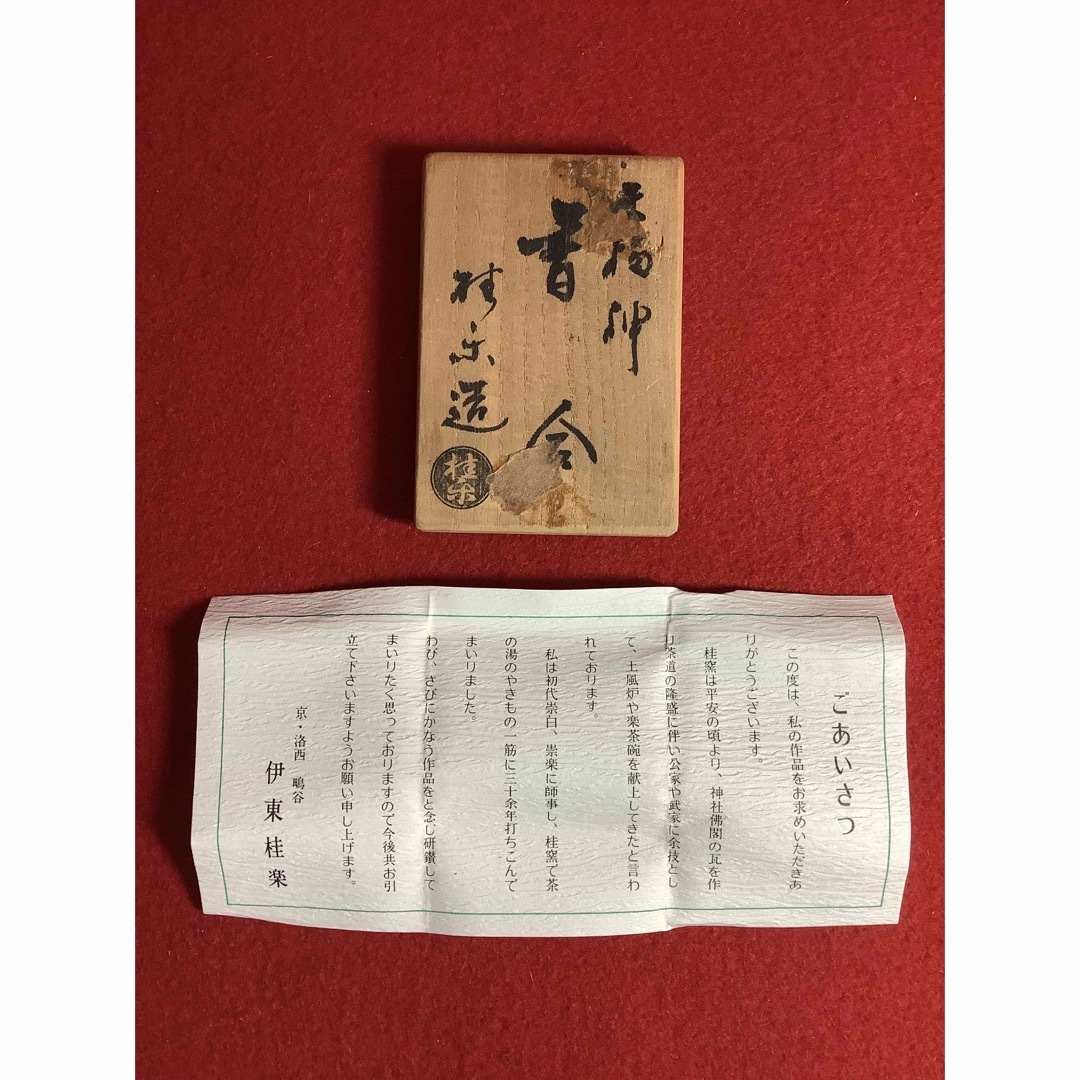 福神
香合
桂楽造
桂楽
ごあいさつ
この度は、私の作品をお求めいただきあ
りがとうございます。
桂窯は平安の頃より、神社佛閣の瓦を作
り茶道の隆盛に伴い公家や武家に余技とし
て、土風炉や楽茶碗を献上してきたと言わ
れております。
私は初代崇白、崇楽に師事し、桂窯で茶
の湯のやきもの一筋に三十余年打ちこんで
まいりました。
わび、さびにかなう作品をと念じ研鑽して
まいりたく思っておりますので今後共お引
立て下さいますようお願い申し上げます。
京・洛西 鴫谷
伊東桂楽